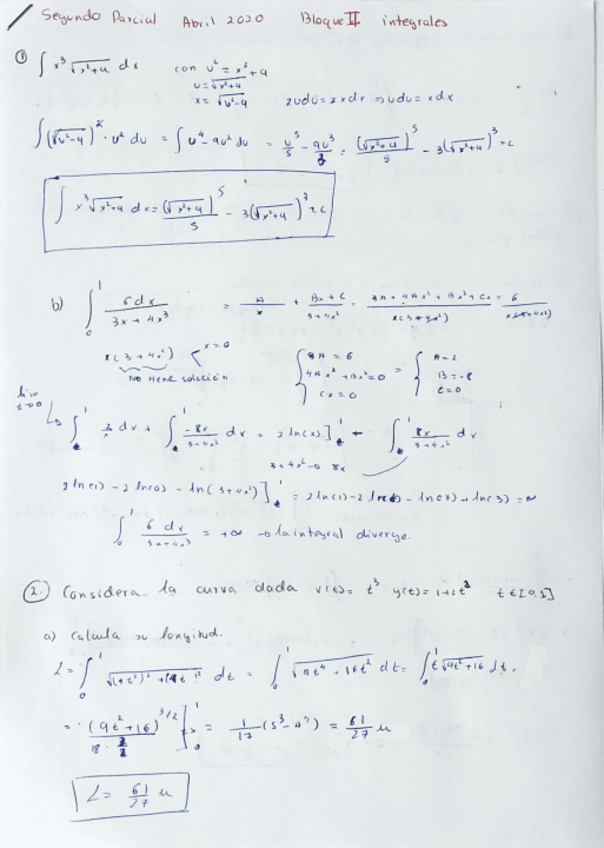 Segundo Parcial Abril 2020 Bloque II integrales
① ∫ x³ √(x²+4) dx con u² = x²+9
u = √(x²+4)
x = √(u²-9) 2udu = 2xdx ⇒ udu = xdx
∫ (√(u²-9))² · u² du = ∫ u⁴ - 9u² du = u⁵/5 - 9u³/3 = (√(x²+4))⁵/5 - 3(√(x²+4))³ + c
∫ x³ √(x²+4) dx = (√(x²+4))⁵/5 - 3(√(x²+4))³ + c
b) ∫₀¹ 6dx/(3x+4x³) = A/x + (Bx+C)/(3+4x²) = (3A+4Ax²+Bx²+Cx)/(x(3+4x²)) = 6/(x(3+4x²))
x(3+4x²) x=0
No tiene solución
{ 3A = 6 = { A=2
4Ax²+Bx²=0 B=-8
Cx=0 C=0
lim t→0
∫ₜ¹ 2/x dx + ∫ₜ¹ -8x/(3+4x²) dx = 2 ln(x)]ₜ¹ - ∫ₜ¹ 8x/(3+4x²) dx
3+4x² → 8x
2ln(1) - 2ln(0) - ln(3+4x²)]ₜ¹ = 2ln(1) - 2ln(0) - ln(7) + ln(3) = ∞
∫₀¹ 6dx/(3x+4x³) = +∞ → la integral diverge.
②. Considera la curva dada x(t) = t³ y(t) = 1+2t² t ∈ [0,1]
a) Calcula su longitud.
L = ∫₀¹ √((3t²)² + (4t)²) dt = ∫₀¹ √(9t⁴+16t²) dt = ∫₀¹ t√(9t²+16) dt =
= (9t²+16)^(3/2)/(18·3/2)]₀¹ = 1/17 (5³-4³) = 61/27 u
L = 61/27 u